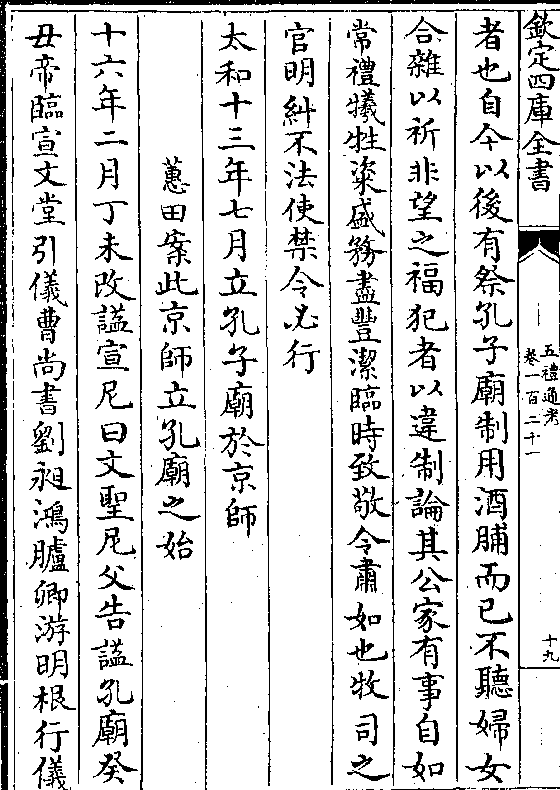 欽定四庫全書
五禮通考
卷一百二十一
十九
者也自今以後有祭孔子廟制用酒脯而已不聽婦女
合雜以祈非望之福犯者以違制論其公家有事自如
常禮犧牲粢盛務盡豐潔臨時致敬令肅如也牧司之
官明糾不法使禁令必行
太和十三年七月立孔子廟於京師
蕙田案此京師立孔廟之始
十六年二月丁未改謚宣尼曰文聖尼父告謚孔廟癸
丑帝臨宣文堂引儀曹尚書劉昶鴻臚卿游明根行儀